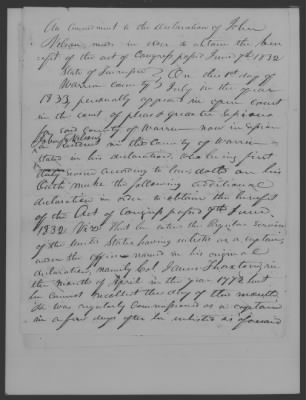 An amendment to the declaration of John
Nelson made in order to obtain the ben
efit of the act of Congress passed June 7th 1832
State of Tennessee } On the 1st day of
Warren County } July in the year
1833 personally appeared in open court
in the court of pleas & quarter sessions
for said County of Warren now in session
John Nelson
a resident in the County of Warren as
stated in his declaration, who being first
duly sworn according to law, doth on his
Oath make the following additional
declaration in order to obtain the benefit
of the Act of Congress passed 7th June
1832 Viz That he enter the Regular service
of the United States having enlisted as a captain
under the officer named in his original
declaration, namely Col James Thaxton in
the month of April in the year 1778 but
he cannot recollect the day of the month
He was regularly commissioned as a captain
in a few days after he enlisted as aforesaid